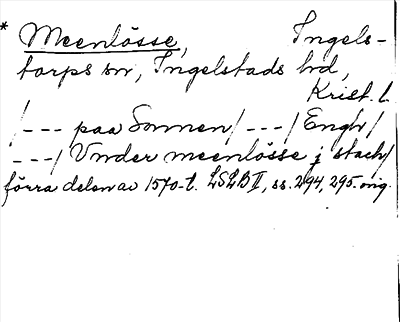 * Meenlösse, Ingels-
torps sn, Ingelstads hd,
Krist. l.
/--- paa Sonnen/ ---/ Engh/
---/ Vnder meenlösse j stach/
förra delen av 1570-t. LSLB II, ss. 294, 295. orig.